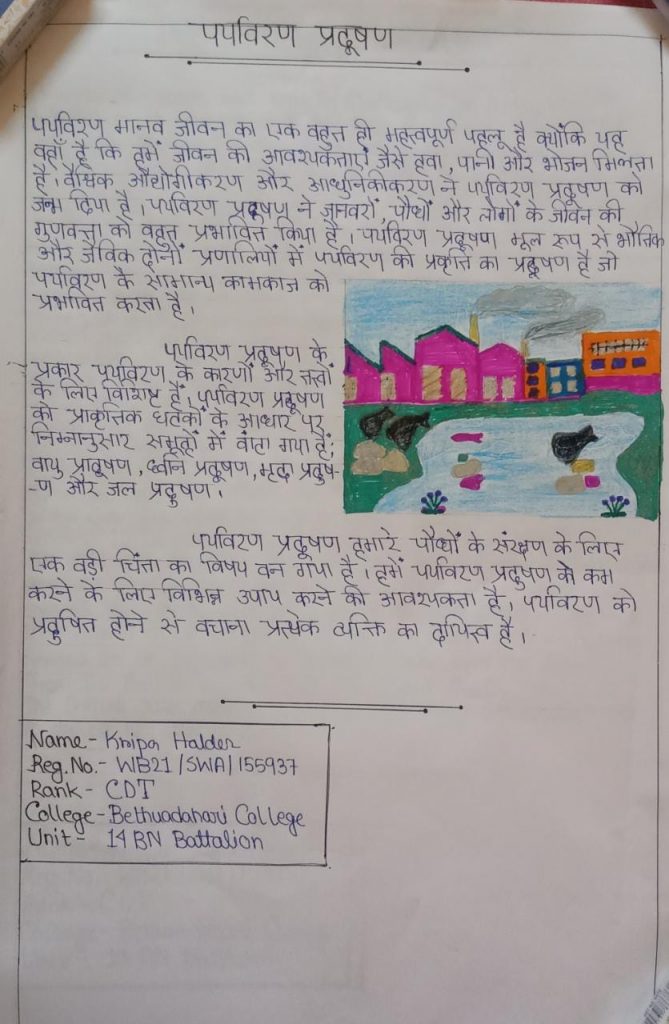 पर्यावरण प्रदूषण
पर्यावरण मानव जीवन का एक बहुत ही महत्वपूर्ण पहलू है क्योंकि यह
वहाँ है कि हमें जीवन की आवश्यकताएं जैसे हवा, पानी और भोजन मिलता
है। वैश्विक औद्योगीकरण और आधुनिकीकरण ने पर्यावरण प्रदूषण को
जन्म दिया है। पर्यावरण प्रदूषण ने जानवरों, पौधों और लोगों के जीवन की
गुणवत्ता को बहुत प्रभावित किया है। पर्यावरण प्रदूषण मूल रूप से भौतिक
और जैविक दोनों प्रणालियों में पर्यावरण की प्रकृति का प्रदूषण है जो
पर्यावरण के सामान्य कामकाज को
प्रभावित करता है।
पर्यावरण प्रदूषण के
प्रकार पर्यावरण के कारणों और तत्वों
के लिए विशिष्ट हैं। पर्यावरण प्रदूषण
को प्राकृतिक घटकों के आधार पर
निम्नानुसार समूहों में बांटा गया है;
वायु प्रादूषण, ध्वनि प्रदूषण, मृदा प्रदुष-
-ण और जल प्रदुषण।
पर्यावरण प्रदूषण हमारे पौधों के संरक्षण के लिए
एक बड़ी चिंता का विषय बन गया है। हमें पर्यावरण प्रदुषण को कम
करने के लिए विभिन्न उपाय करने की आवश्यकता है। पर्यावरण को
प्रदुषित होने से बचाना प्रत्येक व्यक्ति का दायित्व है।
Name - Kripa Halder
Reg. No. - WB21/SWA/155937
Rank - CDT
College - Bethuadahari College
Unit - 14 BN Battalion